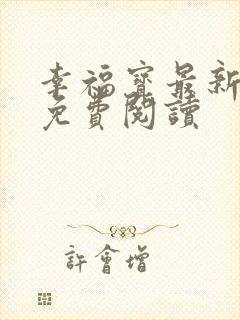 幸福寶最新
免費閱讀
許會增